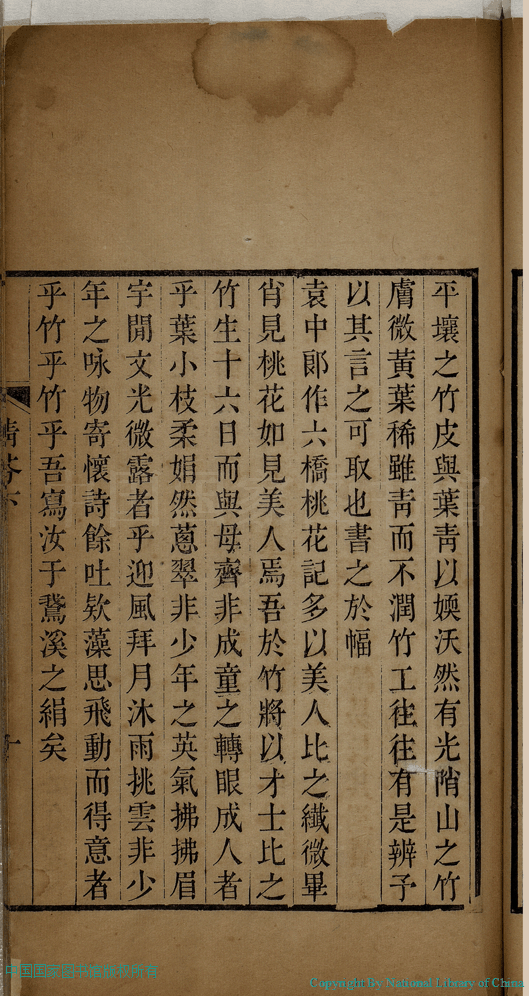 平壤之竹皮與葉青以媆沃然有光陗山之竹
膚微黃葉稀雖青而不潤竹工往往有是辨予
以其言之可取也書之於幅
袁中郎作六橋桃花記多以美人比之纖微畢
肖見桃花如見美人焉吾於竹將以才士比之
竹生十六日而與母齊非成童之轉眼成人者
乎葉小枝柔娟然蔥翠非少年之英氣拂拂眉
宇閒文光微露者乎迎風拜月沐雨挑雲非少
年之咏物寄懷詩餘吐欵藻思飛動而得意者
乎竹乎竹乎吾寫汝于鵞溪之絹矣
Copyright By National Library of China